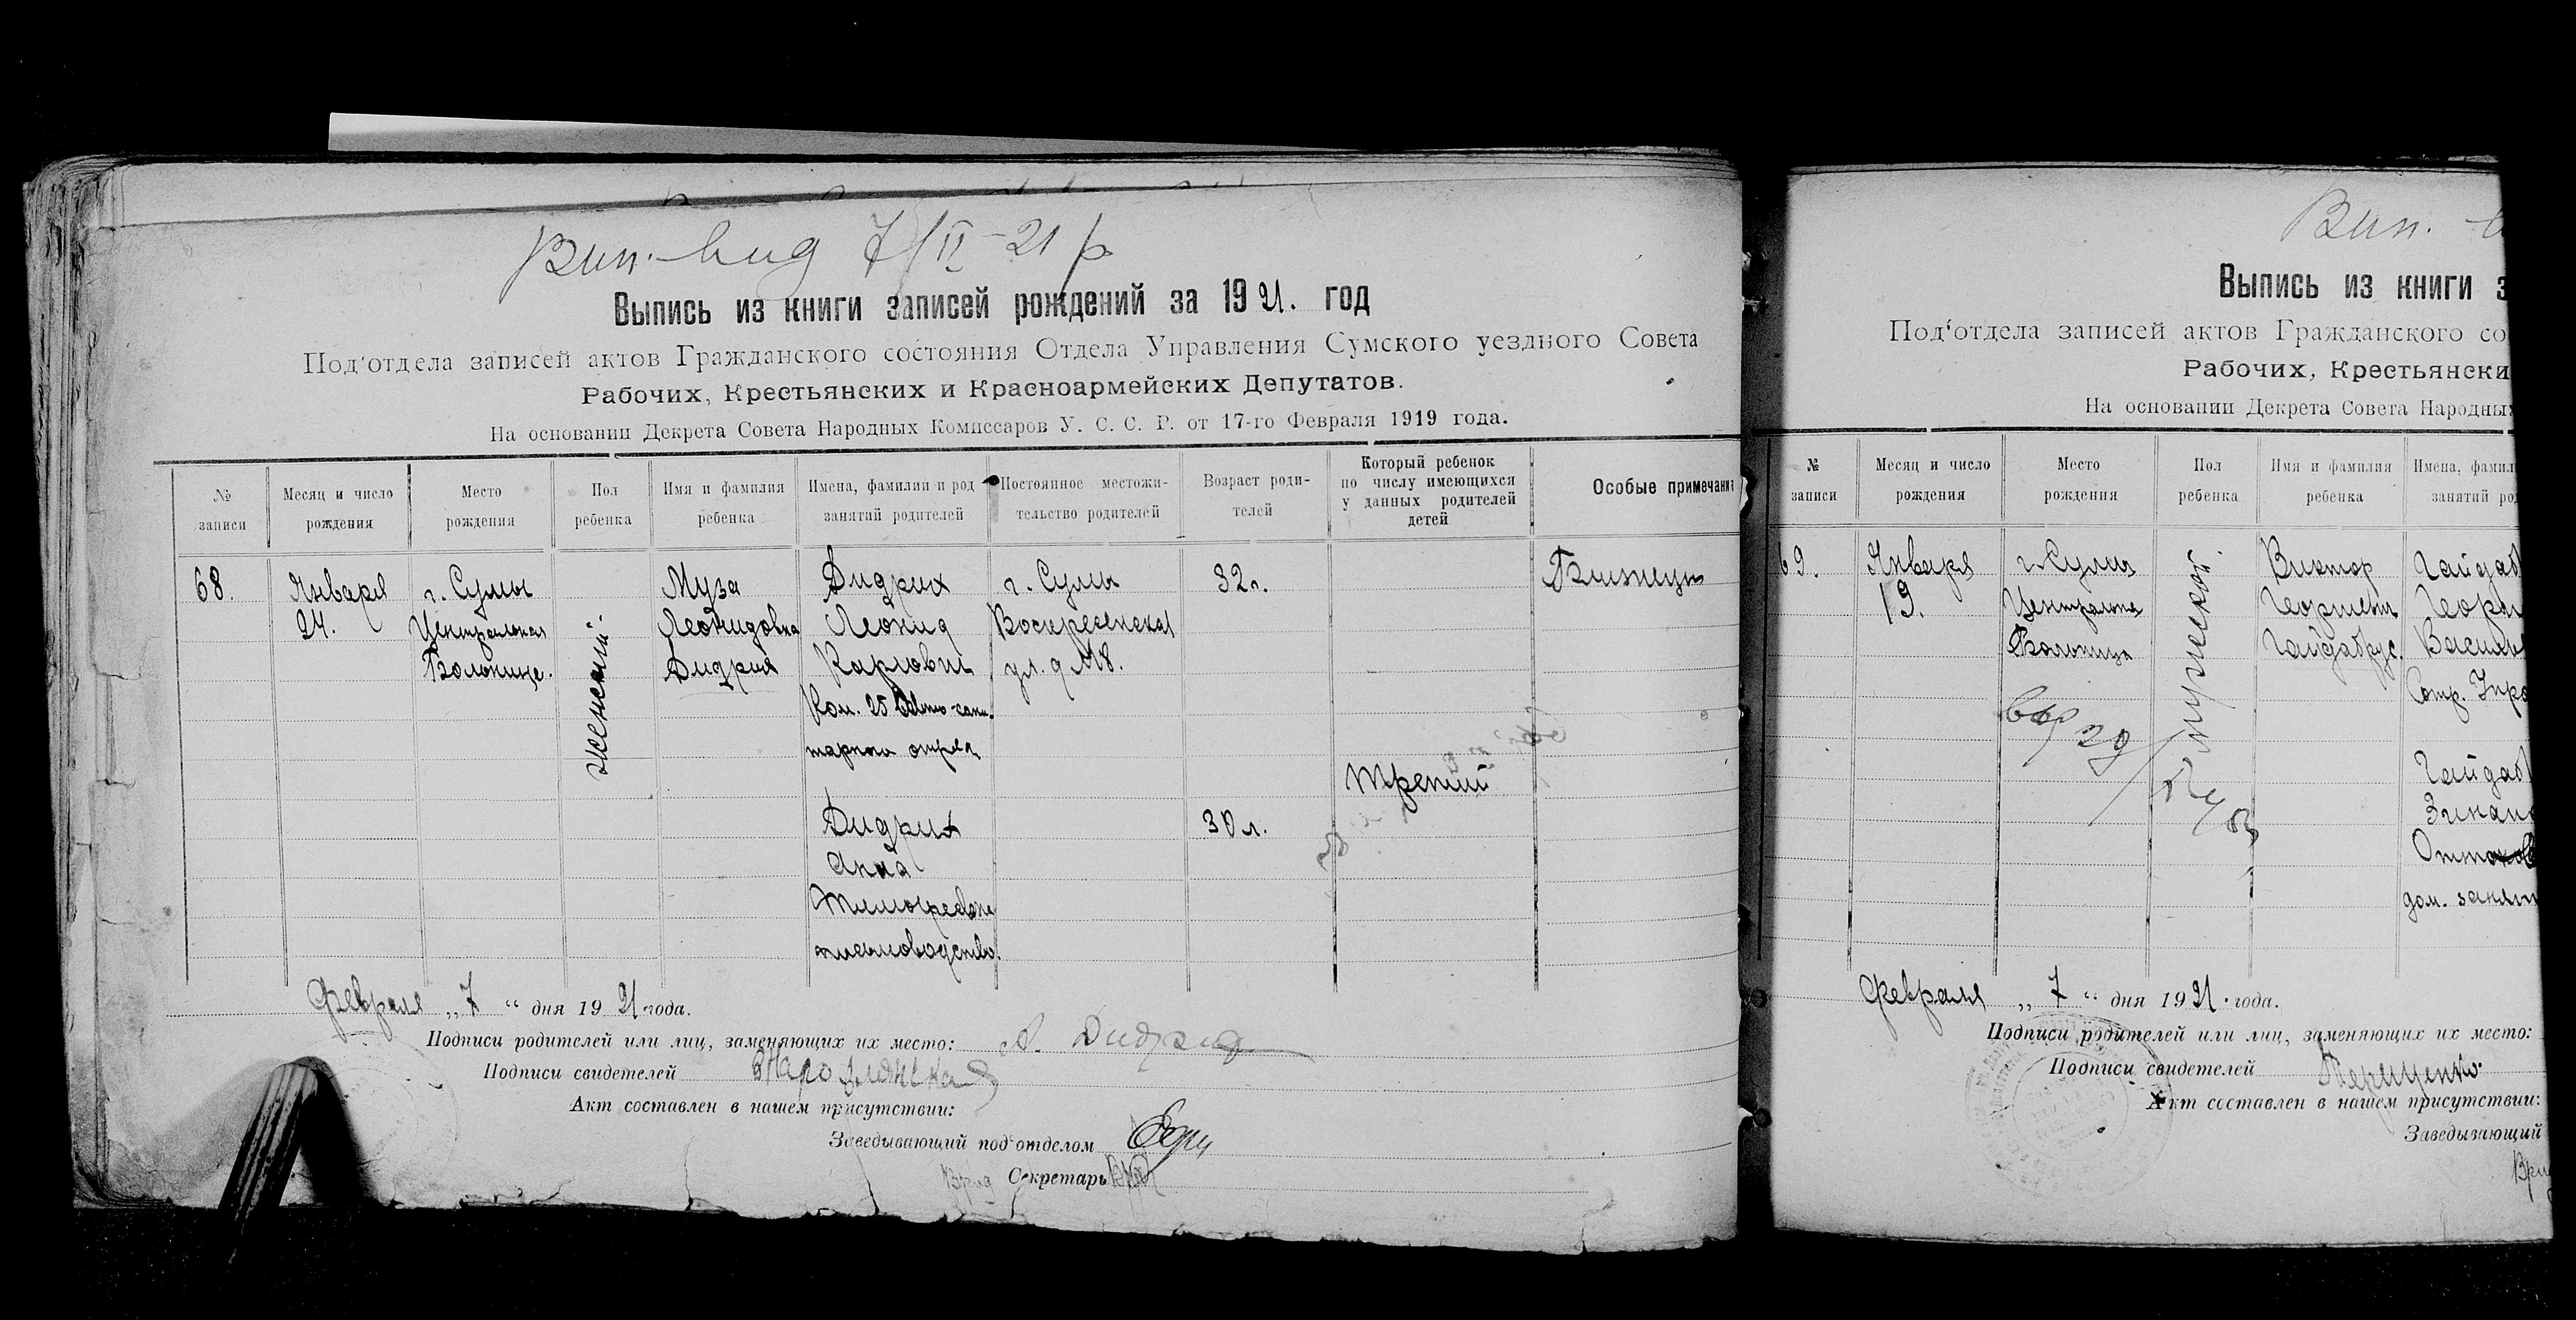 Вип. вид 7/II-21 р
Выпись из книги записей рождений за 1921. год
Под‘отдела записей актов Гражданского состояния Отдела Управления Сумского уездного Совета
Рабочих, Крестьянских и Красноармейских Депутатов.
На основании Декрета Совета Народных Комиссаров У. С. С. Р. от 17-го Февраля 1919 года.
№ записи
Месяц и число рождения
Место рождения
Пол ребенка
Имя и фамилия ребенка
Имена, фамилии и род занятий родителей
Постоянное местожительство родителей
Возраст родителей
Который ребенок по числу имеющихся у данных родителей детей
Особые примечания
68.
Января
24.
г. Сумы
Центральная
Больнице.
женский
Муза
Леонидовна
Дидрих
Дидрих
Леонид
Карлович
Ком. 25
тарный отряд
Дидрих
Анна
Тимофеевна
письмоводство.
г. Сумы
Воскресенская
ул. д №8.
32 г.
30 л.
Третий
Близнецы
Февраля „ 7 “ дня 1921 года.
Подписи родителей или лиц, заменяющих их место: А. Дидрих
Подписи свидетелей
Акт составлен в нашем присутствии:
Заведывающий под‘отделом
Врид Секретарь
Вип.
Выпись из книги з
Под‘отдела записей актов Гражданского со
Рабочих, Крестьянски
На основании Декрета Совета Народны
№ записи
Месяц и число рождения
Место рождения
Пол ребенка
Имя и фамилия ребенка
Имена, фамил
занятий ро
69.
Января
19.
г. Сумы
Центральна
Больница
мужеской
Виктор
Георгиевич
Гайдабрус.
Гайдаб
Георг
Василь
Сотр. Упро
Гайдаб
Зинаи
дом. занят
Февраля „ 7 “ дня 1921. года.
Подписи родителей или лиц, заменяющих их место:
Подписи свидетелей Терещенко.
Акт составлен в нашем присутствии:
Заведывающий
Врид